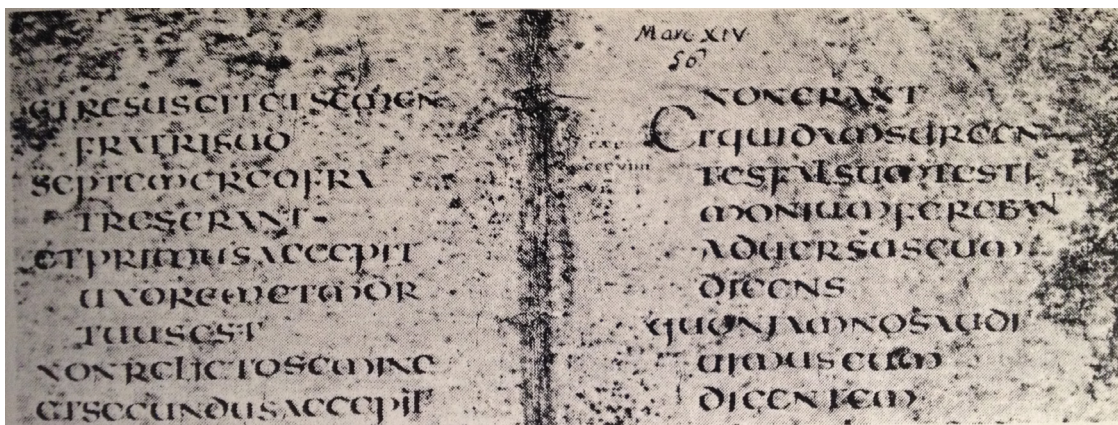 ETRESUSCITETSEMEN
FRATRISUO
SEPTEMERGOFRA
TRESERANT
ETPRIMUSACCEPIT
UXOREMETMOR
TUUSEST
NONRELICTOSEMINE
ETSECUNDUSACCEPIT
Marc XIV
56
NONERANT
ETQUIDAMSURGEN
TESFALSUMTESTI
MONIUMFEREBAN
ADUERSUSEUM
DICENS
QUONIAMNOSAUDI
UIMUSEUM
DICENTEM